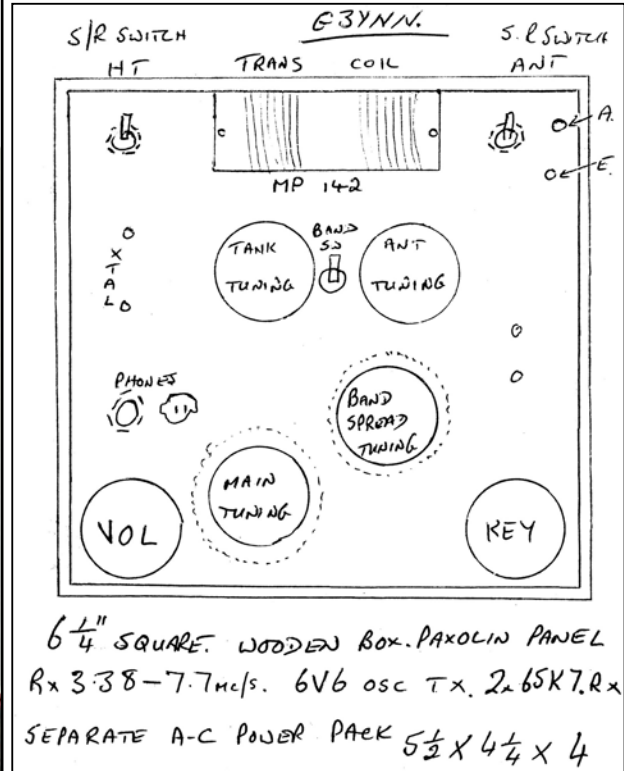 G3YNN.
S/R SWITCH
HT
TRANS COIL
S.R SWITCH
ANT
A.
E.
MP 142
XTAL
TANK
TUNING
BAND
SW
ANT
TUNING
PHONES
BAND
SPREAD
TUNING
MAIN
TUNING
VOL
KEY
6 1/4" SQUARE. WOODEN BOX. PAXOLIN PANEL
Rx 3.38-7.7 Mc/s. 6V6 OSC TX. 2x6SK7.Rx
SEPARATE A-C POWER PACK 5 1/2 X 4 1/4 X 4